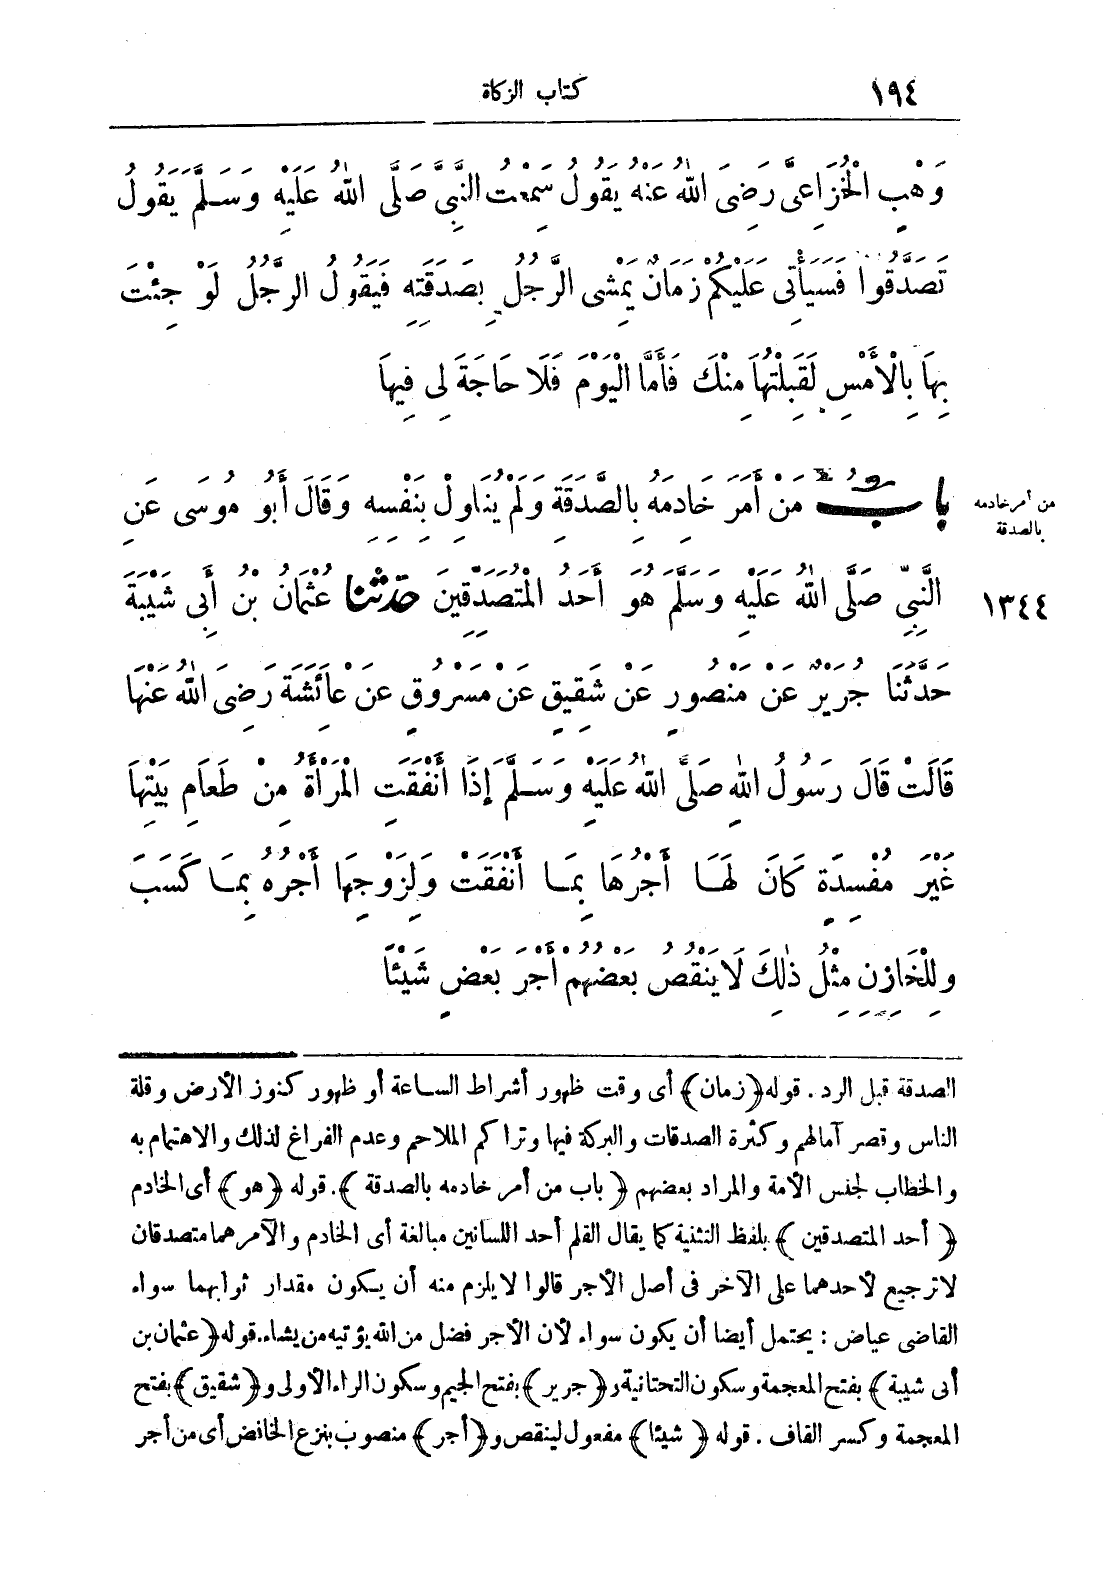 ١٩٤
كتاب الزكاة
وَهْبٍ الْخُزَاعِىَّ رَضِىَ اللهُ عَنْهُ يَقُولُ سَمِعْتُ النَّبِىَّ صَلَّى اللهُ عَلَيْهِ وَسَلَّمَ يَقُولُ
تَصَدَّقُوا فَسَيَأْتِى عَلَيْكُمْ زَمَانٌ يَمْشِى الرَّجُلُ بِصَدَقَتِهِ فَيَقُولُ الرَّجُلُ لَوْ جِئْتَ
بِهَا بِالْأَمْسِ لَقَبِلْتُهَا مِنْكَ فَأَمَّا الْيَوْمَ فَلَا حَاجَةَ لِى فِيهَا
بَابُ مَنْ أَمَرَ خَادِمَهُ بِالصَّدَقَةِ وَلَمْ يُنَاوِلْ بِنَفْسِهِ وَقَالَ أَبُو مُوسَى عَنِ
من أمر خادمه
بالصدقة
النَّبِىِّ صَلَّى اللهُ عَلَيْهِ وَسَلَّمَ هُوَ أَحَدُ الْمُتَصَدِّقَيْنِ حَدَّثَنَا عُثْمَانُ بْنُ أَبِى شَيْبَةَ
١٣٤٤
حَدَّثَنَا جَرِيرٌ عَنْ مَنْصُورٍ عَنْ شَقِيقٍ عَنْ مَسْرُوقٍ عَنْ عَائِشَةَ رَضِىَ اللهُ عَنْهَا
قَالَتْ قَالَ رَسُولُ اللهِ صَلَّى اللهُ عَلَيْهِ وَسَلَّمَ إِذَا أَنْفَقَتِ الْمَرْأَةُ مِنْ طَعَامِ بَيْتِهَا
غَيْرَ مُفْسِدَةٍ كَانَ لَهَا أَجْرُهَا بِمَا أَنْفَقَتْ وَلِزَوْجِهَا أَجْرُهُ بِمَا كَسَبَ
وَلِلْخَازِنِ مِثْلُ ذَلِكَ لَا يَنْقُصُ بَعْضُهُمْ أَجْرَ بَعْضٍ شَيْئًا
الصدقة قبل الرد . قوله ﴿زمان﴾ أى وقت ظهور أشراط الساعة أو ظهور كنوز الأرض وقلة
الناس وقصر آمالهم وكثرة الصدقات والبركة فيها وتراكم الملاحم وعدم الفراغ لذلك والاهتمام به
والخطاب لجنس الأمة والمراد بعضهم ﴿باب من أمر خادمه بالصدقة﴾. قوله ﴿هو﴾ أى الخادم
﴿أحد المتصدقين﴾ بلفظ التثنية كما يقال القلم أحد اللسانين مبالغة أى الخادم والآمر هما متصدقان
لاترجيع لأحدهما على الآخر فى أصل الأجر قالوا لا يلزم منه أن يكون مقدار ثوابهما سواء
القاضى عياض : يحتمل أيضا أن يكون سواء لأن الأجر فضل من الله يؤتيه من يشاء. قوله ﴿عثمان بن
أبى شيبة﴾ بفتح المعجمة وسكون التحتانية و﴿جرير﴾ بفتح الجيم وسكون الراء الأولى و﴿شقيق﴾ بفتح
المعجمة وكسر القاف . قوله ﴿شيئا﴾ مفعول لينقص و﴿أجر﴾ منصوب بنزع الخافض أى من أجر